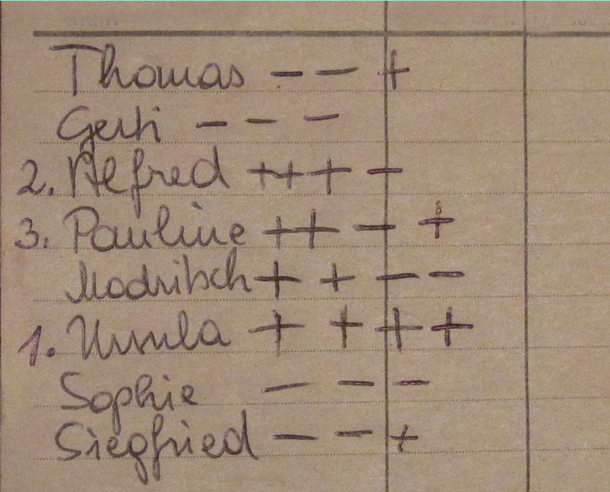 Thomas - - +
Gerti - - -
2. Alfred +++ -
3. Pauline ++ - +
Modritsch + + - -
1. Ursula + + + +
Sophie - - -
Siegfried - - +